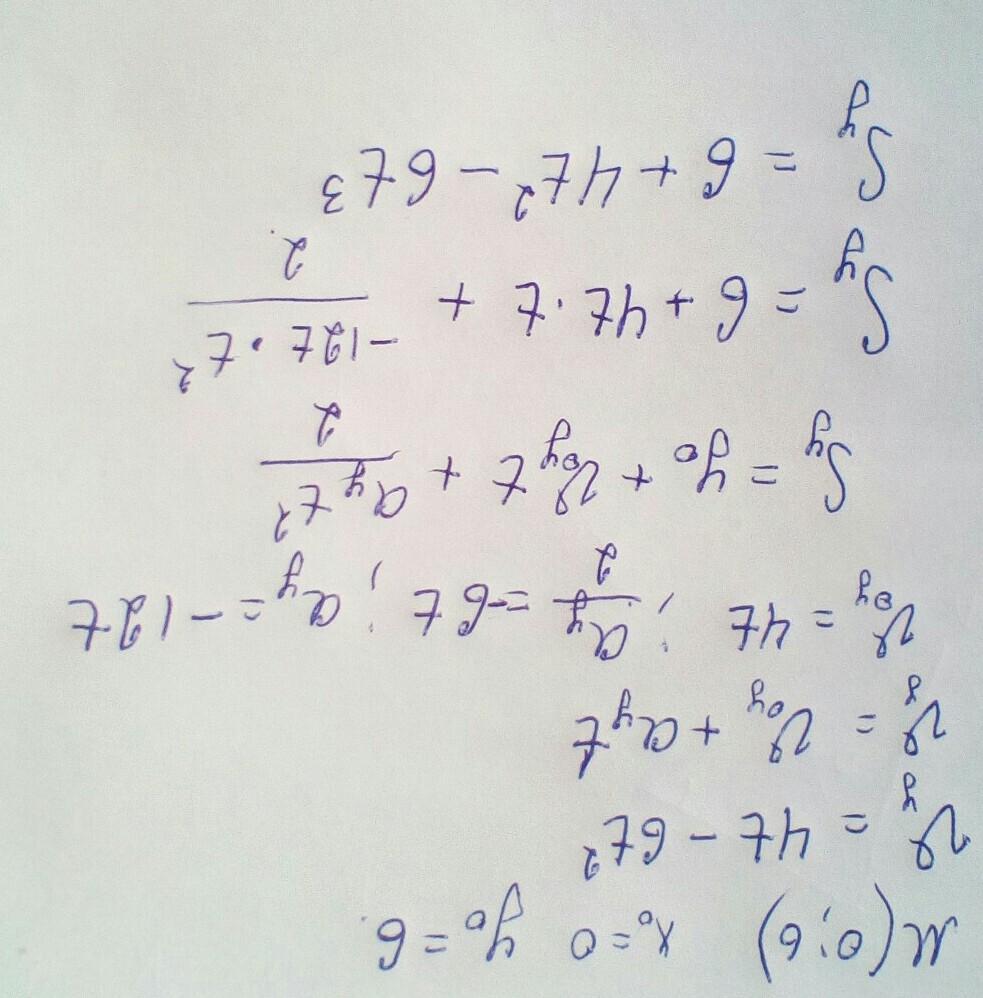 M(0;6) x₀=0 y₀=6.
𝒱y = 4t - 6t²
𝒱y = 𝒱₀y + ayt
𝒱₀y = 4t ; ay/2 = -6t ; ay = -12t
Sy = y₀ + 𝒱₀y t + ayt²/2
Sy = 6 + 4t · t + -12t · t²/2
Sy = 6 + 4t² - 6t³